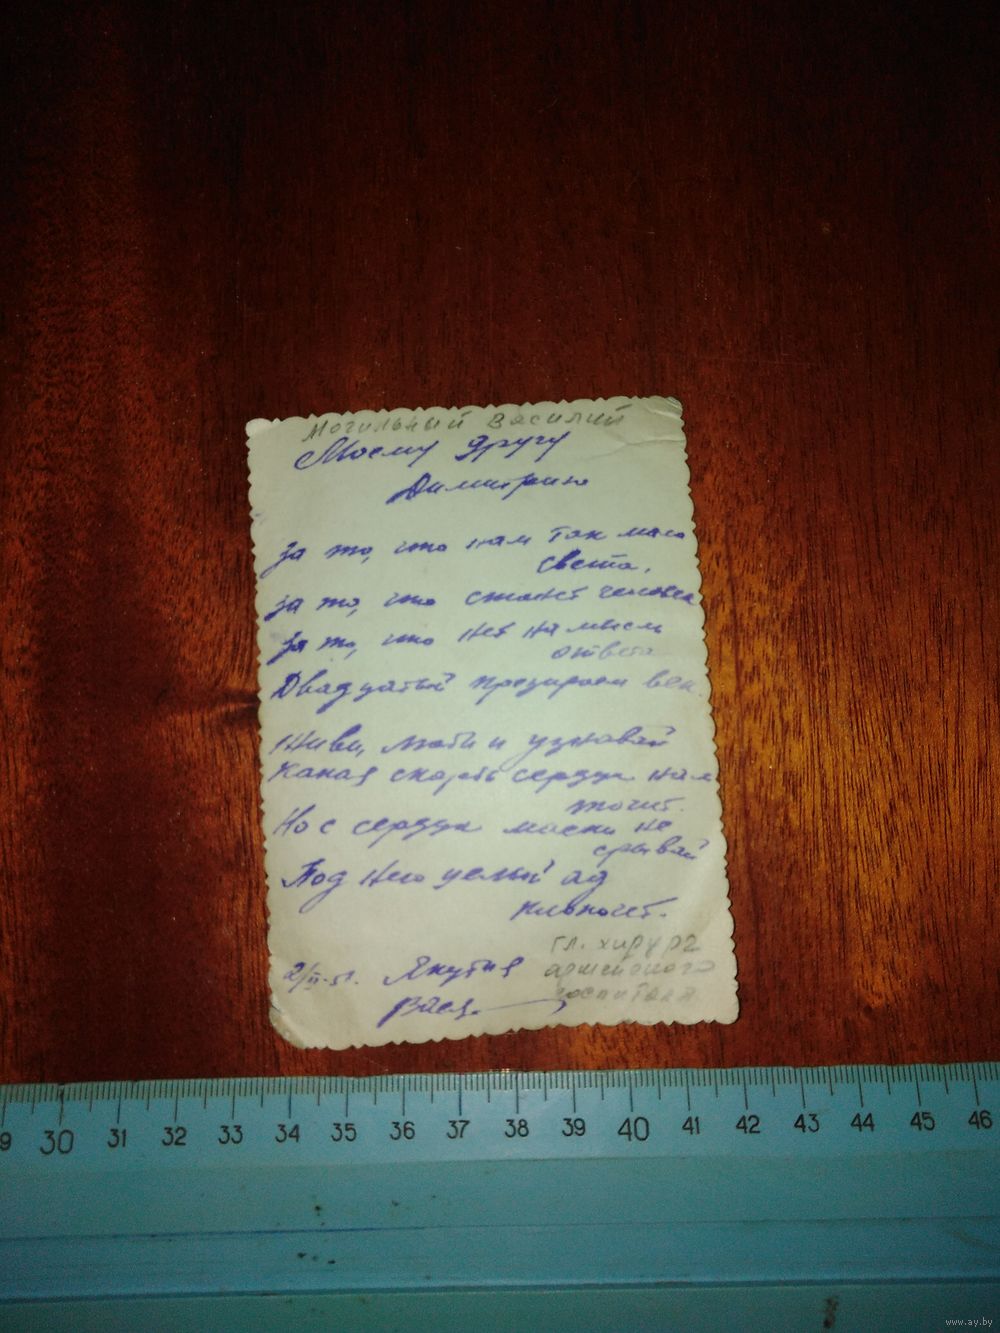 Могильный Василий
Моему другу
Димитрию
За то, что нам так мало
света,
За то, что стонет человек
За то, что нет на мысль
ответа
Двадцатый презираем век.
Живи, люби и узнавай
Какая скорбь сердце нам
точит.
Но с сердца маски не
срывай
Под нею целый ад
клокочет.
гл. хирург
армейского
госпиталя
Якутия
Вася
29 30 31 32 33 34 35 36 37 38 39 40 41 42 43 44 45 46
www.ay.by